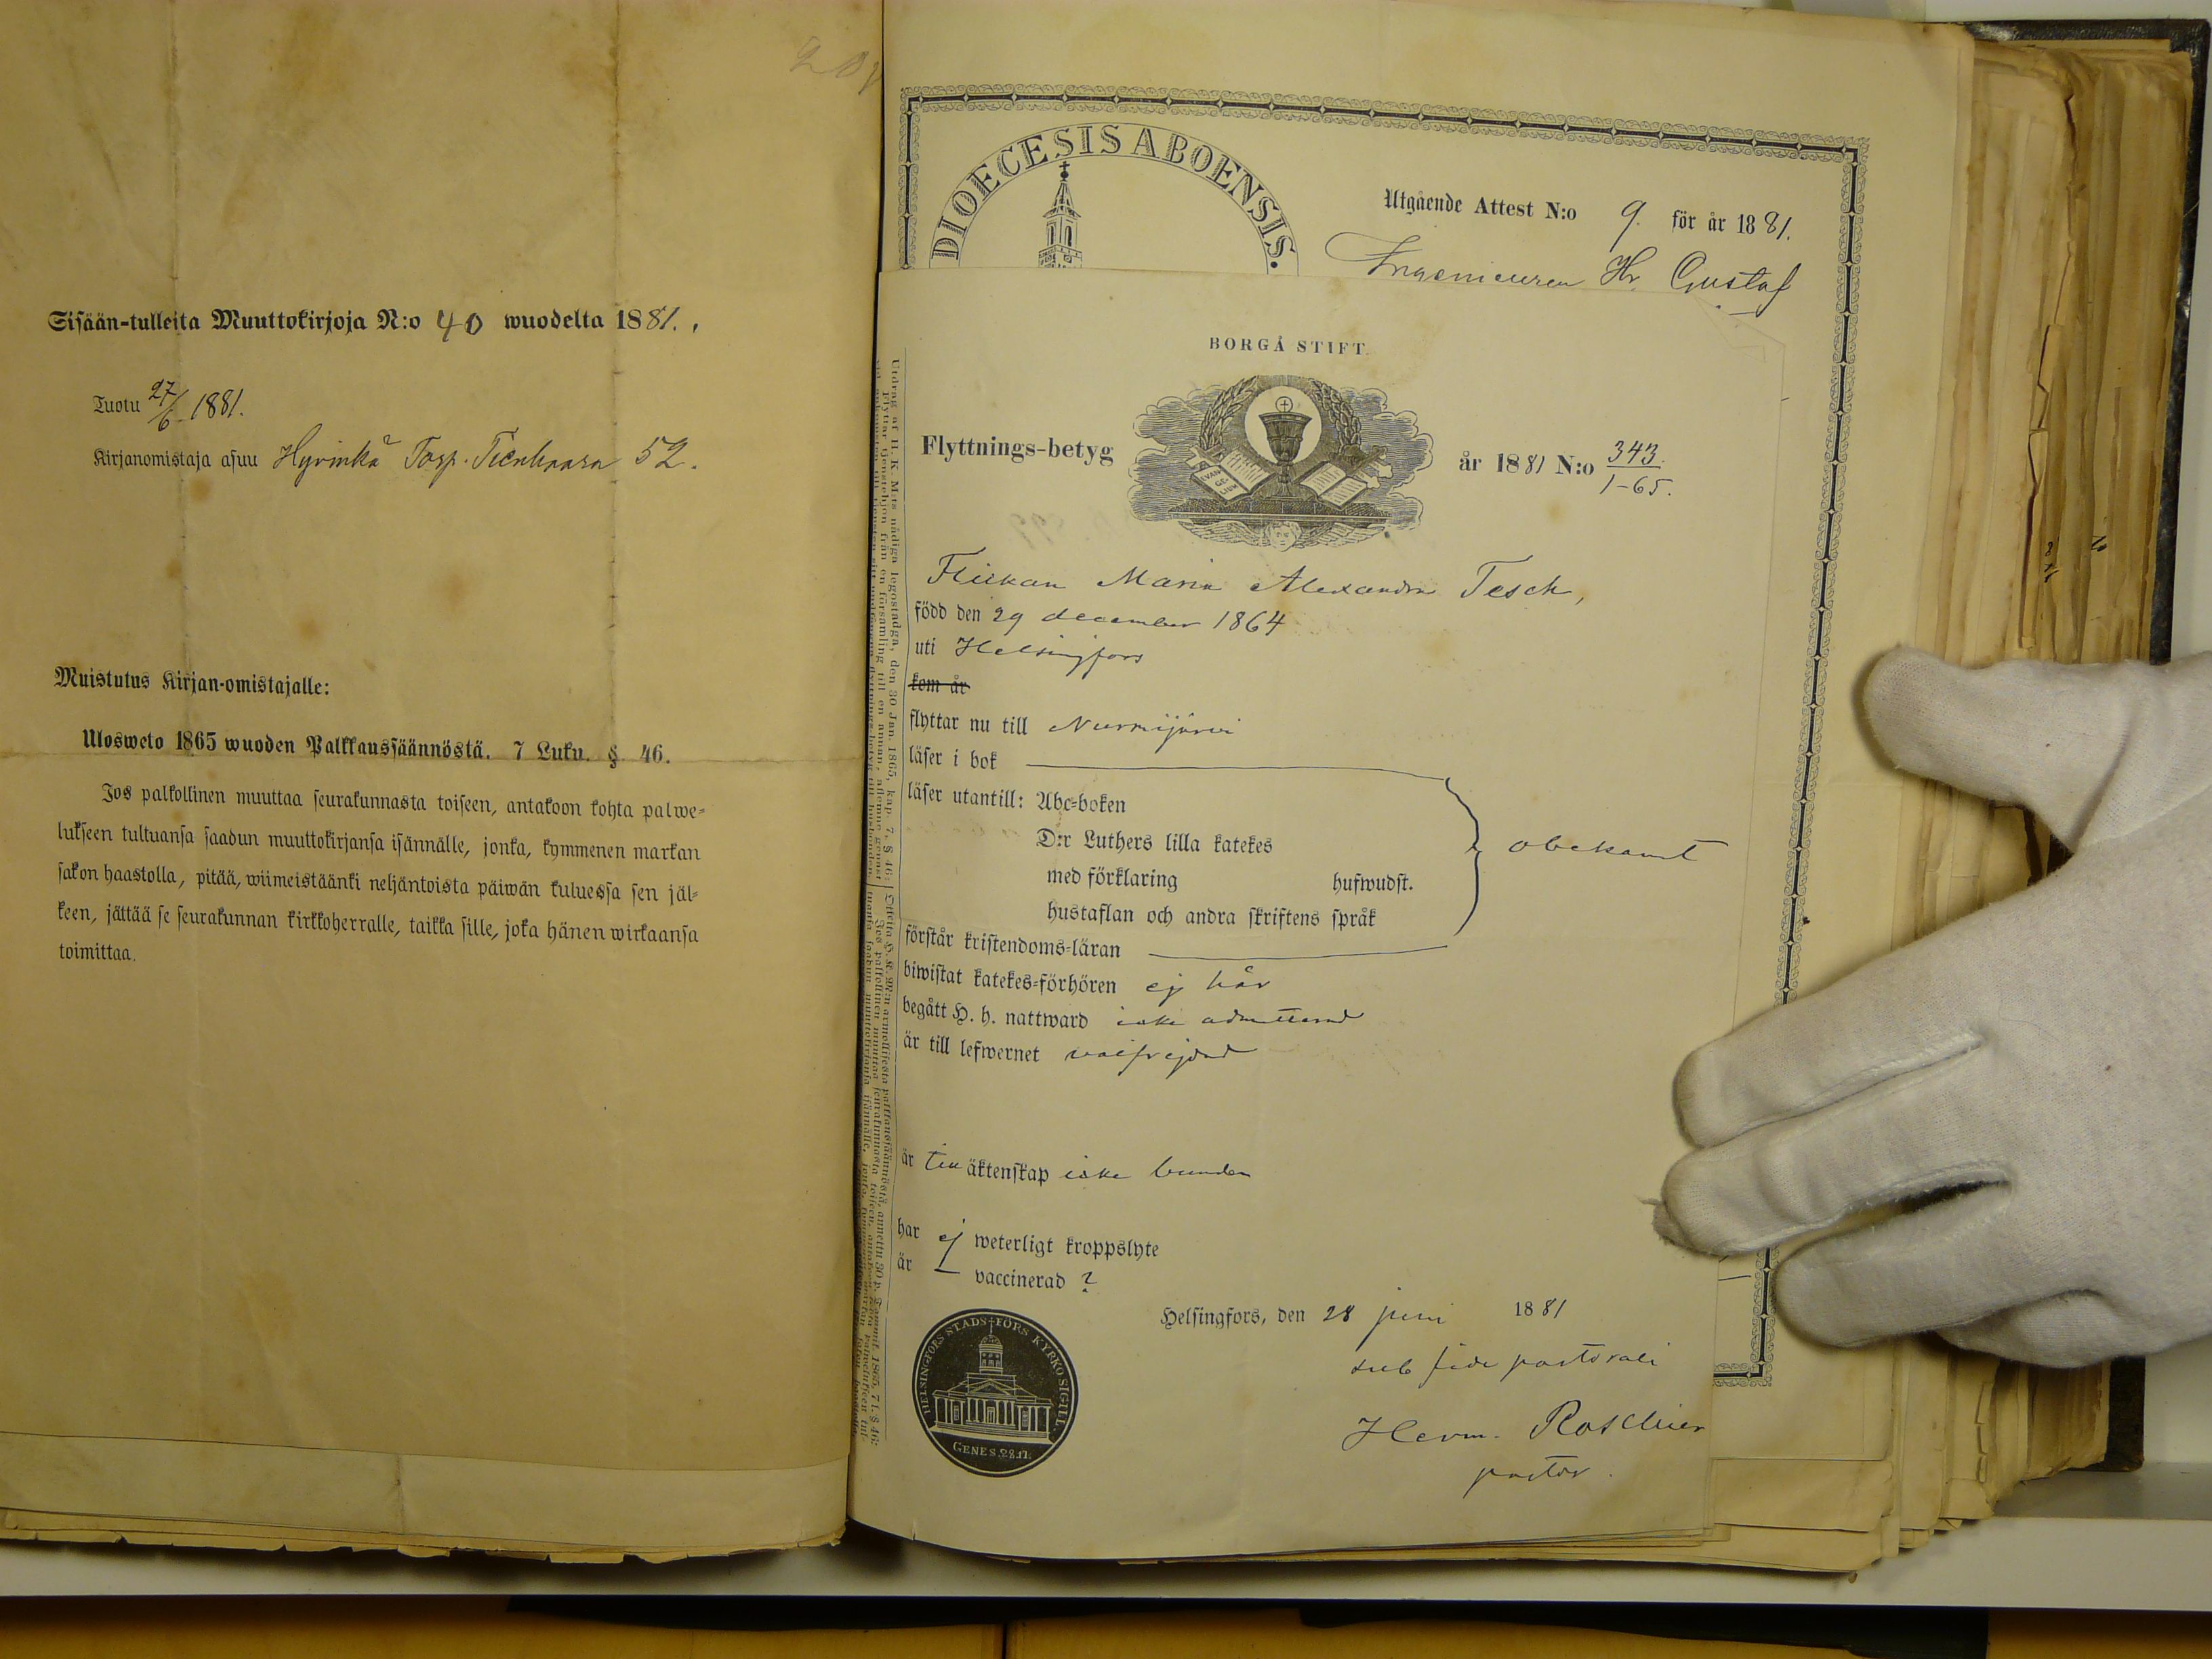 Sisään-tulleita Muuttokirjoja N:o 40 wuodelta 1881.
Tuotu 27/6 1881.
Kirjanomistaja asuu Hyvinkä Torp. Tienhaara 52.
Muistutus Kirjan-omistajalle:
Ulosweto 1865 wuoden Palkkaussäännöstä. 7 Luku. § 46.
Jos palkollinen muuttaa seurakunnasta toiseen, antakoon kohta palwe-
lukseen tultuansa saadun muuttokirjansa isännälle, jonka, kymmenen markan
sakon haastolla, pitää, wiimeistäänki neljäntoista päiwän kuluessa sen jäl-
keen, jättää se seurakunnan kirkkoherralle, taikka sille, joka hänen wirkaansa
toimittaa.
DIOECESIS ABOENSIS.
Utgående Attest N:o 9. för år 1881.
Ingenieuren Hr. Gustaf
BORGÅ STIFT.
EVAN GE LIUM
Flyttnings-betyg år 1881 N:o 343/1-65.
Utdrag af H. K. M:ts nådiga legostadga, den 30 Jan. 1865, kap. 7, § 46:
Flickan Maria Alexandra Tesch,
född den 29 december 1864
uti Helsingfors
kom år
flyttar nu till Nurmijärvi
läser i bok
läser utantill: Abc-boken
D:r Luthers lilla katekes
med förklaring hufwudst.
hustaflan och andra skriftens språk
obekant
förstår kristendoms-läran
biwistat katekes-förhören ej här
begått H. h. nattward icke admitterad
är till lefwernet välfrejdad
är till äktenskap icke bunden
har ej weterligt kroppslyte
är — vaccinerad ?
Helsingfors, den 28 juni 1881
sub fide pastorali
Herm. Roschier
pastor.
HELSINGFORS STADS FÖRS KYRKO SIGILL.
GENES. 28.17.